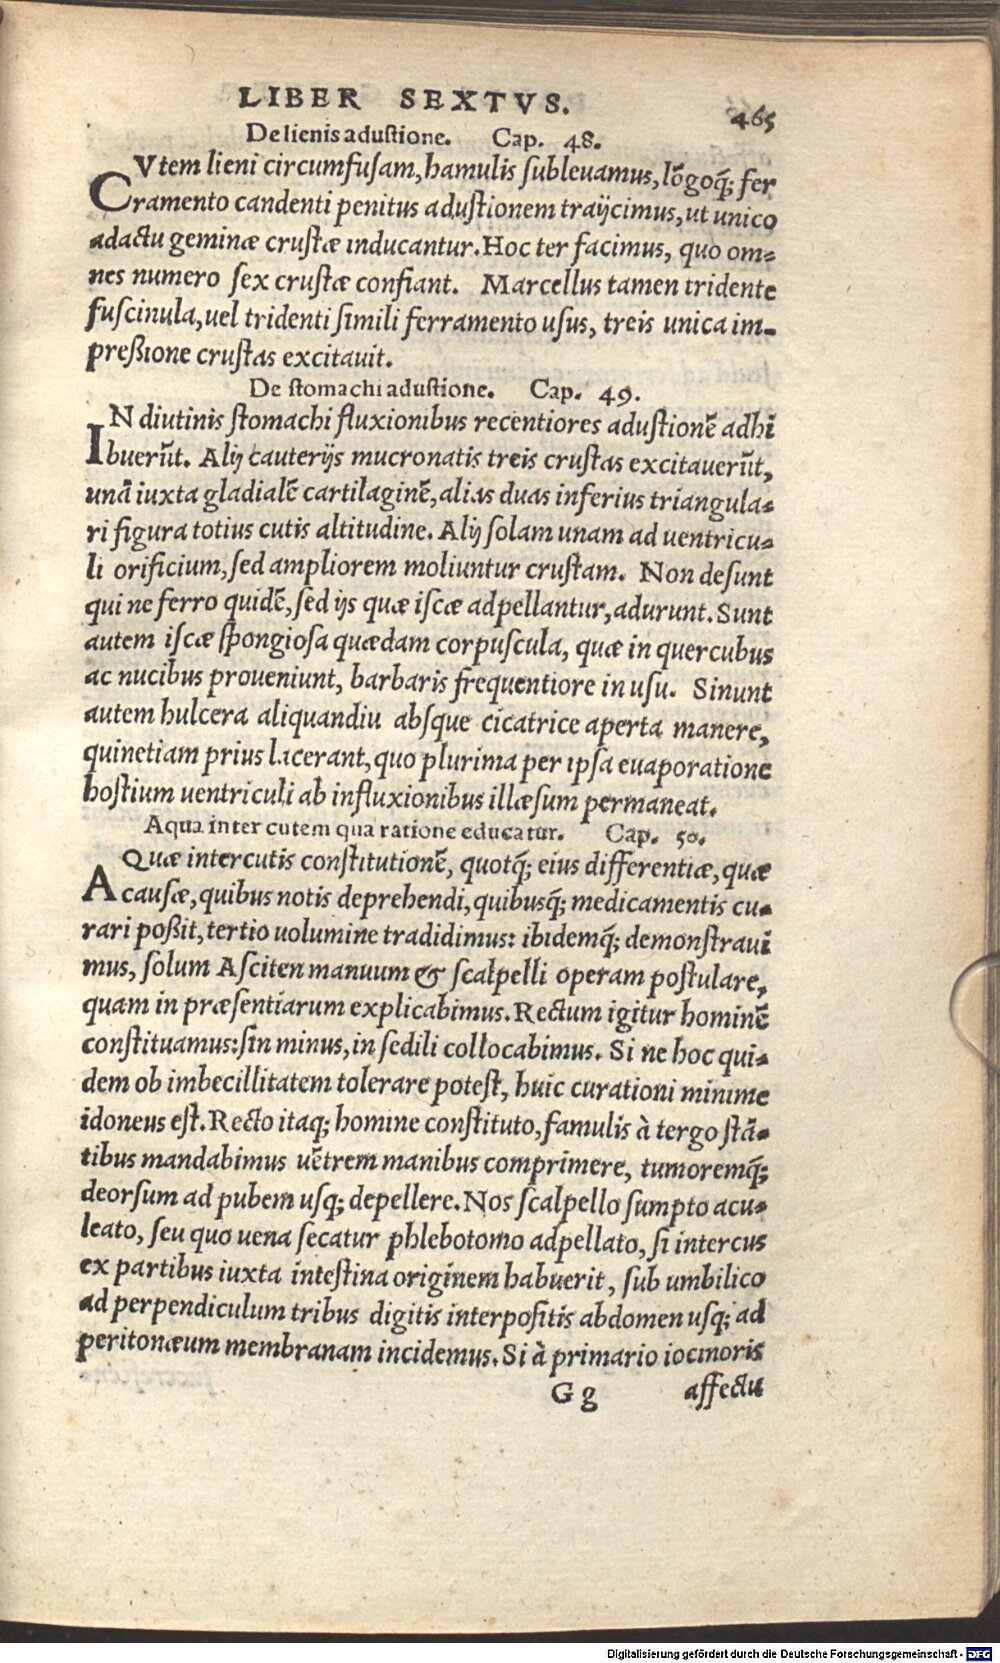 LIBER SEXTVS.
465
De lienis adustione. Cap. 48.
CVtem lieni circumfusam, hamulis subleuamus, lõgoq́; fer
ramento candenti penitus adustionem traijcimus, ut unico
adactu geminæ crustæ inducantur. Hoc ter facimus, quo om-
nes numero sex crustæ confiant. Marcellus tamen tridente
fuscinula, uel tridenti simili ferramento usus, treis unica im-
preßione crustas excitauit.
De stomachi adustione. Cap. 49.
IN diutinis stomachi fluxionibus recentiores adustionẽ adhi
buerũt. Alij cauterijs mucronatis treis crustas excitauerũt,
unã iuxta gladialẽ cartilaginẽ, alias duas inferius triangula-
ri figura totius cutis altitudine. Alij solam unam ad uentricu-
li orificium, sed ampliorem moliuntur crustam. Non desunt
qui ne ferro quidẽ, sed ijs quæ iscæ adpellantur, adurunt. Sunt
autem iscæ spongiosa quædam corpuscula, quæ in quercubus
ac nucibus proueniunt, barbaris frequentiore in usu. Sinunt
autem hulcera aliquandiu absque cicatrice aperta manere,
quinetiam prius lacerant, quo plurima per ipsa euaporatione
hostium uentriculi ab influxionibus illæsum permaneat.
Aqua inter cutem qua ratione educatur. Cap. 50.
AQuæ intercutis constitutionẽ, quotq́; eius differentiæ, quæ
causæ, quibus notis deprehendi, quibusq́; medicamentis cu-
rari poßit, tertio uolumine tradidimus: ibidemq́; demonstraui
mus, solum Asciten manuum & scalpelli operam postulare,
quam in præsentiarum explicabimus. Rectum igitur hominẽ
constituamus: sin minus, in sedili collocabimus. Si ne hoc qui-
dem ob imbecillitatem tolerare potest, huic curationi minime
idoneus est. Recto itaq; homine constituto, famulis à tergo stã-
tibus mandabimus uẽtrem manibus comprimere, tumoremq́;
deorsum ad pubem usq; depellere. Nos scalpello sumpto acu-
leato, seu quo uena secatur phlebotomo adpellato, si intercus
ex partibus iuxta intestina originem habuerit, sub umbilico
ad perpendiculum tribus digitis interpositis abdomen usq; ad
peritonæum membranam incidemus. Si à primario iocinoris
G g affectu
Digitalisierung gefördert durch die Deutsche Forschungsgemeinschaft - DFG